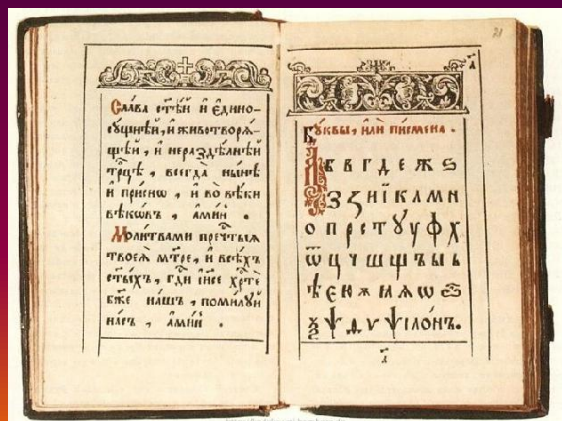 Сла́ва ст҃ѣ́й и҆ є҆дино-
сꙋ́щнѣй, и҆ животворѧ́-
щей, и҆ нераздѣ́лнѣй
трⷪ҇цѣ, всегда̀ ны́нѣ
и҆ при́снѡ, и҆ во вѣ́ки
вѣкѡ́въ, а҆ми́нь.
Моли́твами пречⷭ҇тыѧ
твоеѧ̀ мт҃ре, и҆ всѣ́хъ
ст҃ы́хъ, гдⷭ҇и і҆и҃се хрⷭ҇тѐ
бж҃е на́шъ, поми́лꙋй
на́съ, а҆ми́нь.
21
Бꙋ́квы, и҆лѝ писмена̀.
А б в г д е ж ѕ
з и ї к л м н
о п р с т ꙋ у ф х
ѿ ц ч ш щ ъ ы ь
ѣ є ю ѡ
ѯ ѱ ѳ ѵ ѵ҆́ѱїло́нъ.